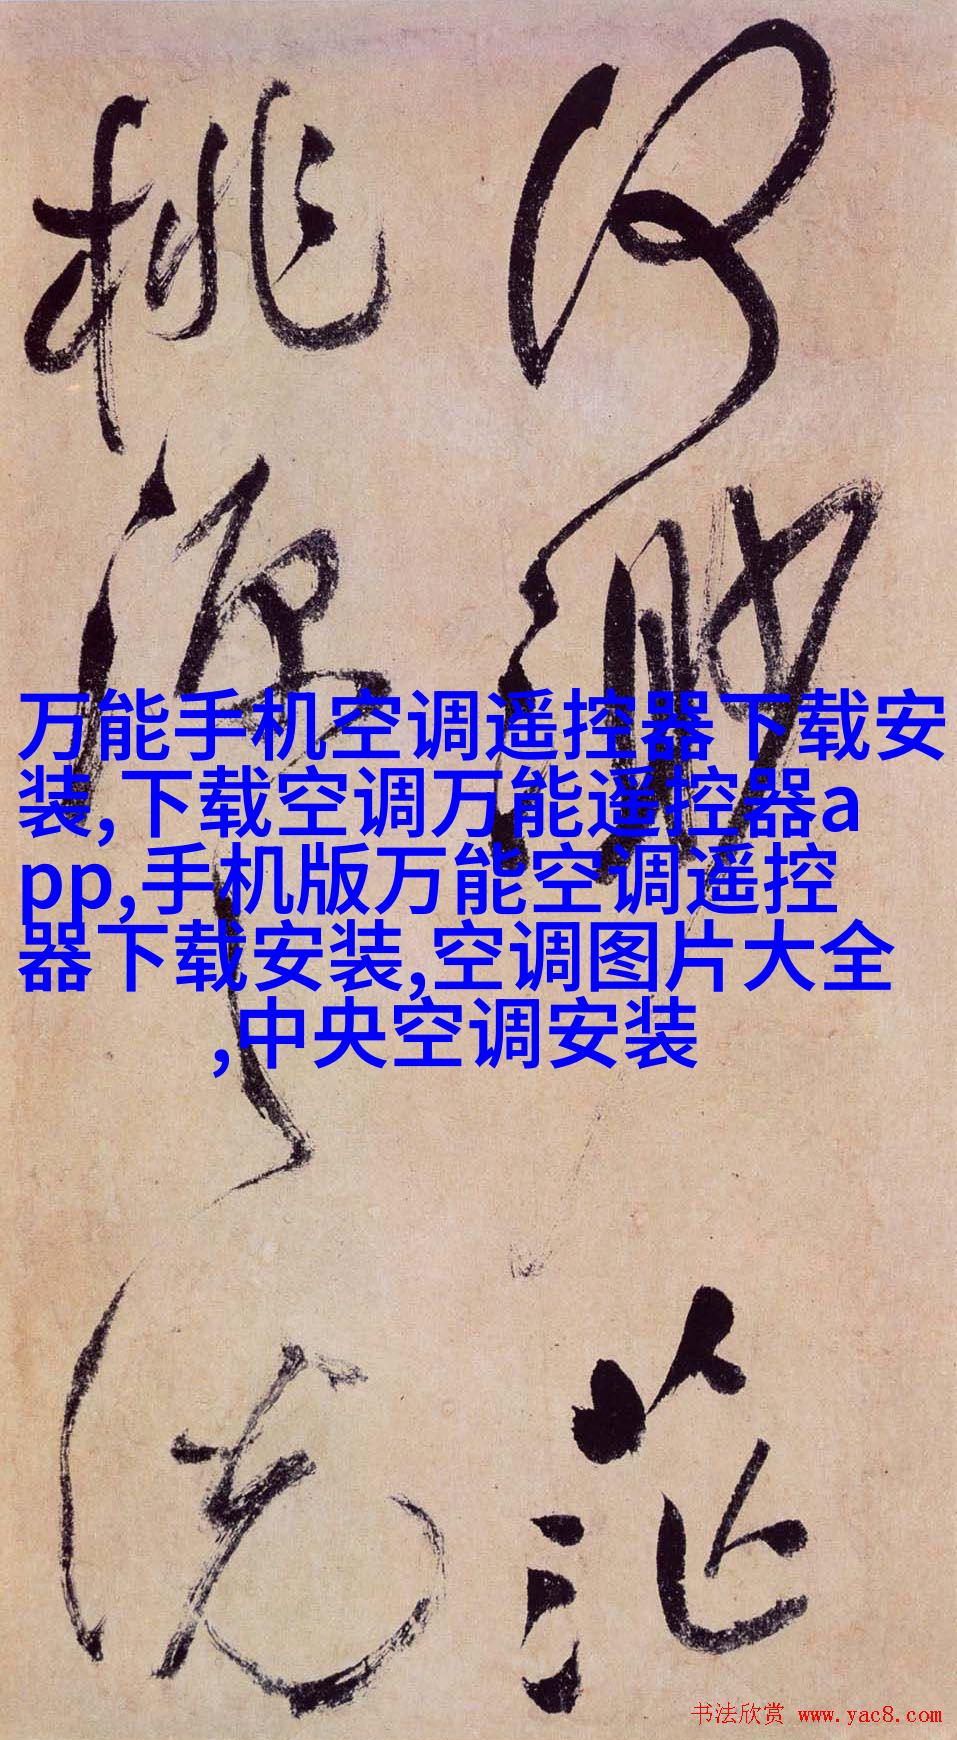 何渺茫
桃源之説
万能手机空调遥控器下载安
装,下载空调万能遥控器a
pp,手机版万能空调遥控
器下载安装,空调图片大全
,中央空调安装
书法欣赏 www.yac8.com